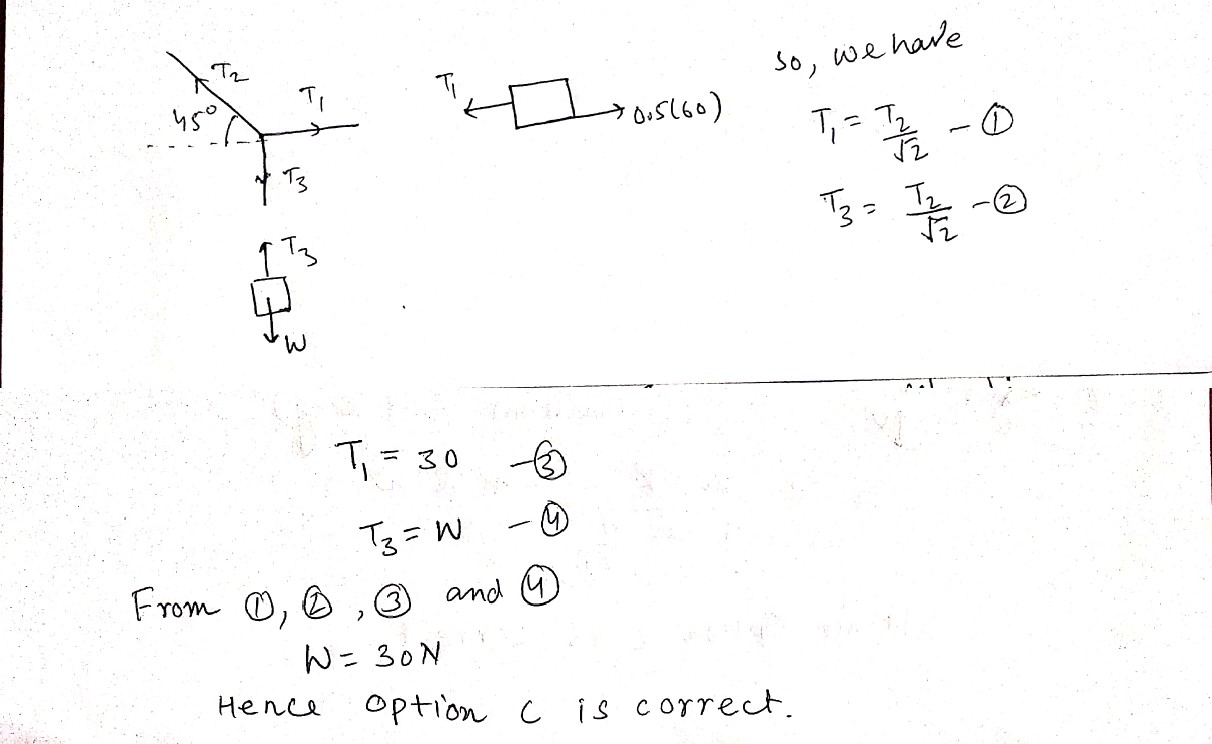 T₂
45°
T₁
T₃
T₃
W
T₁
0.5(60)
so, we have
T₁ = T₂/√2 - ①
T₃ = T₂/√2 - ②
T₁ = 30 - ③
T₃ = W - ④
From ①, ②, ③ and ④
W = 30N
Hence option C is correct.